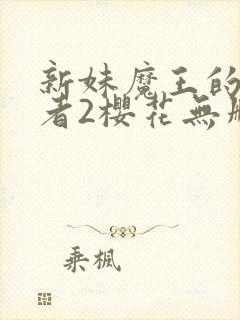 新妹魔王的
者2櫻花無
乘楓